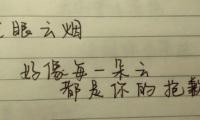 眼云烟
好像每一朵云
都是你的抱歉